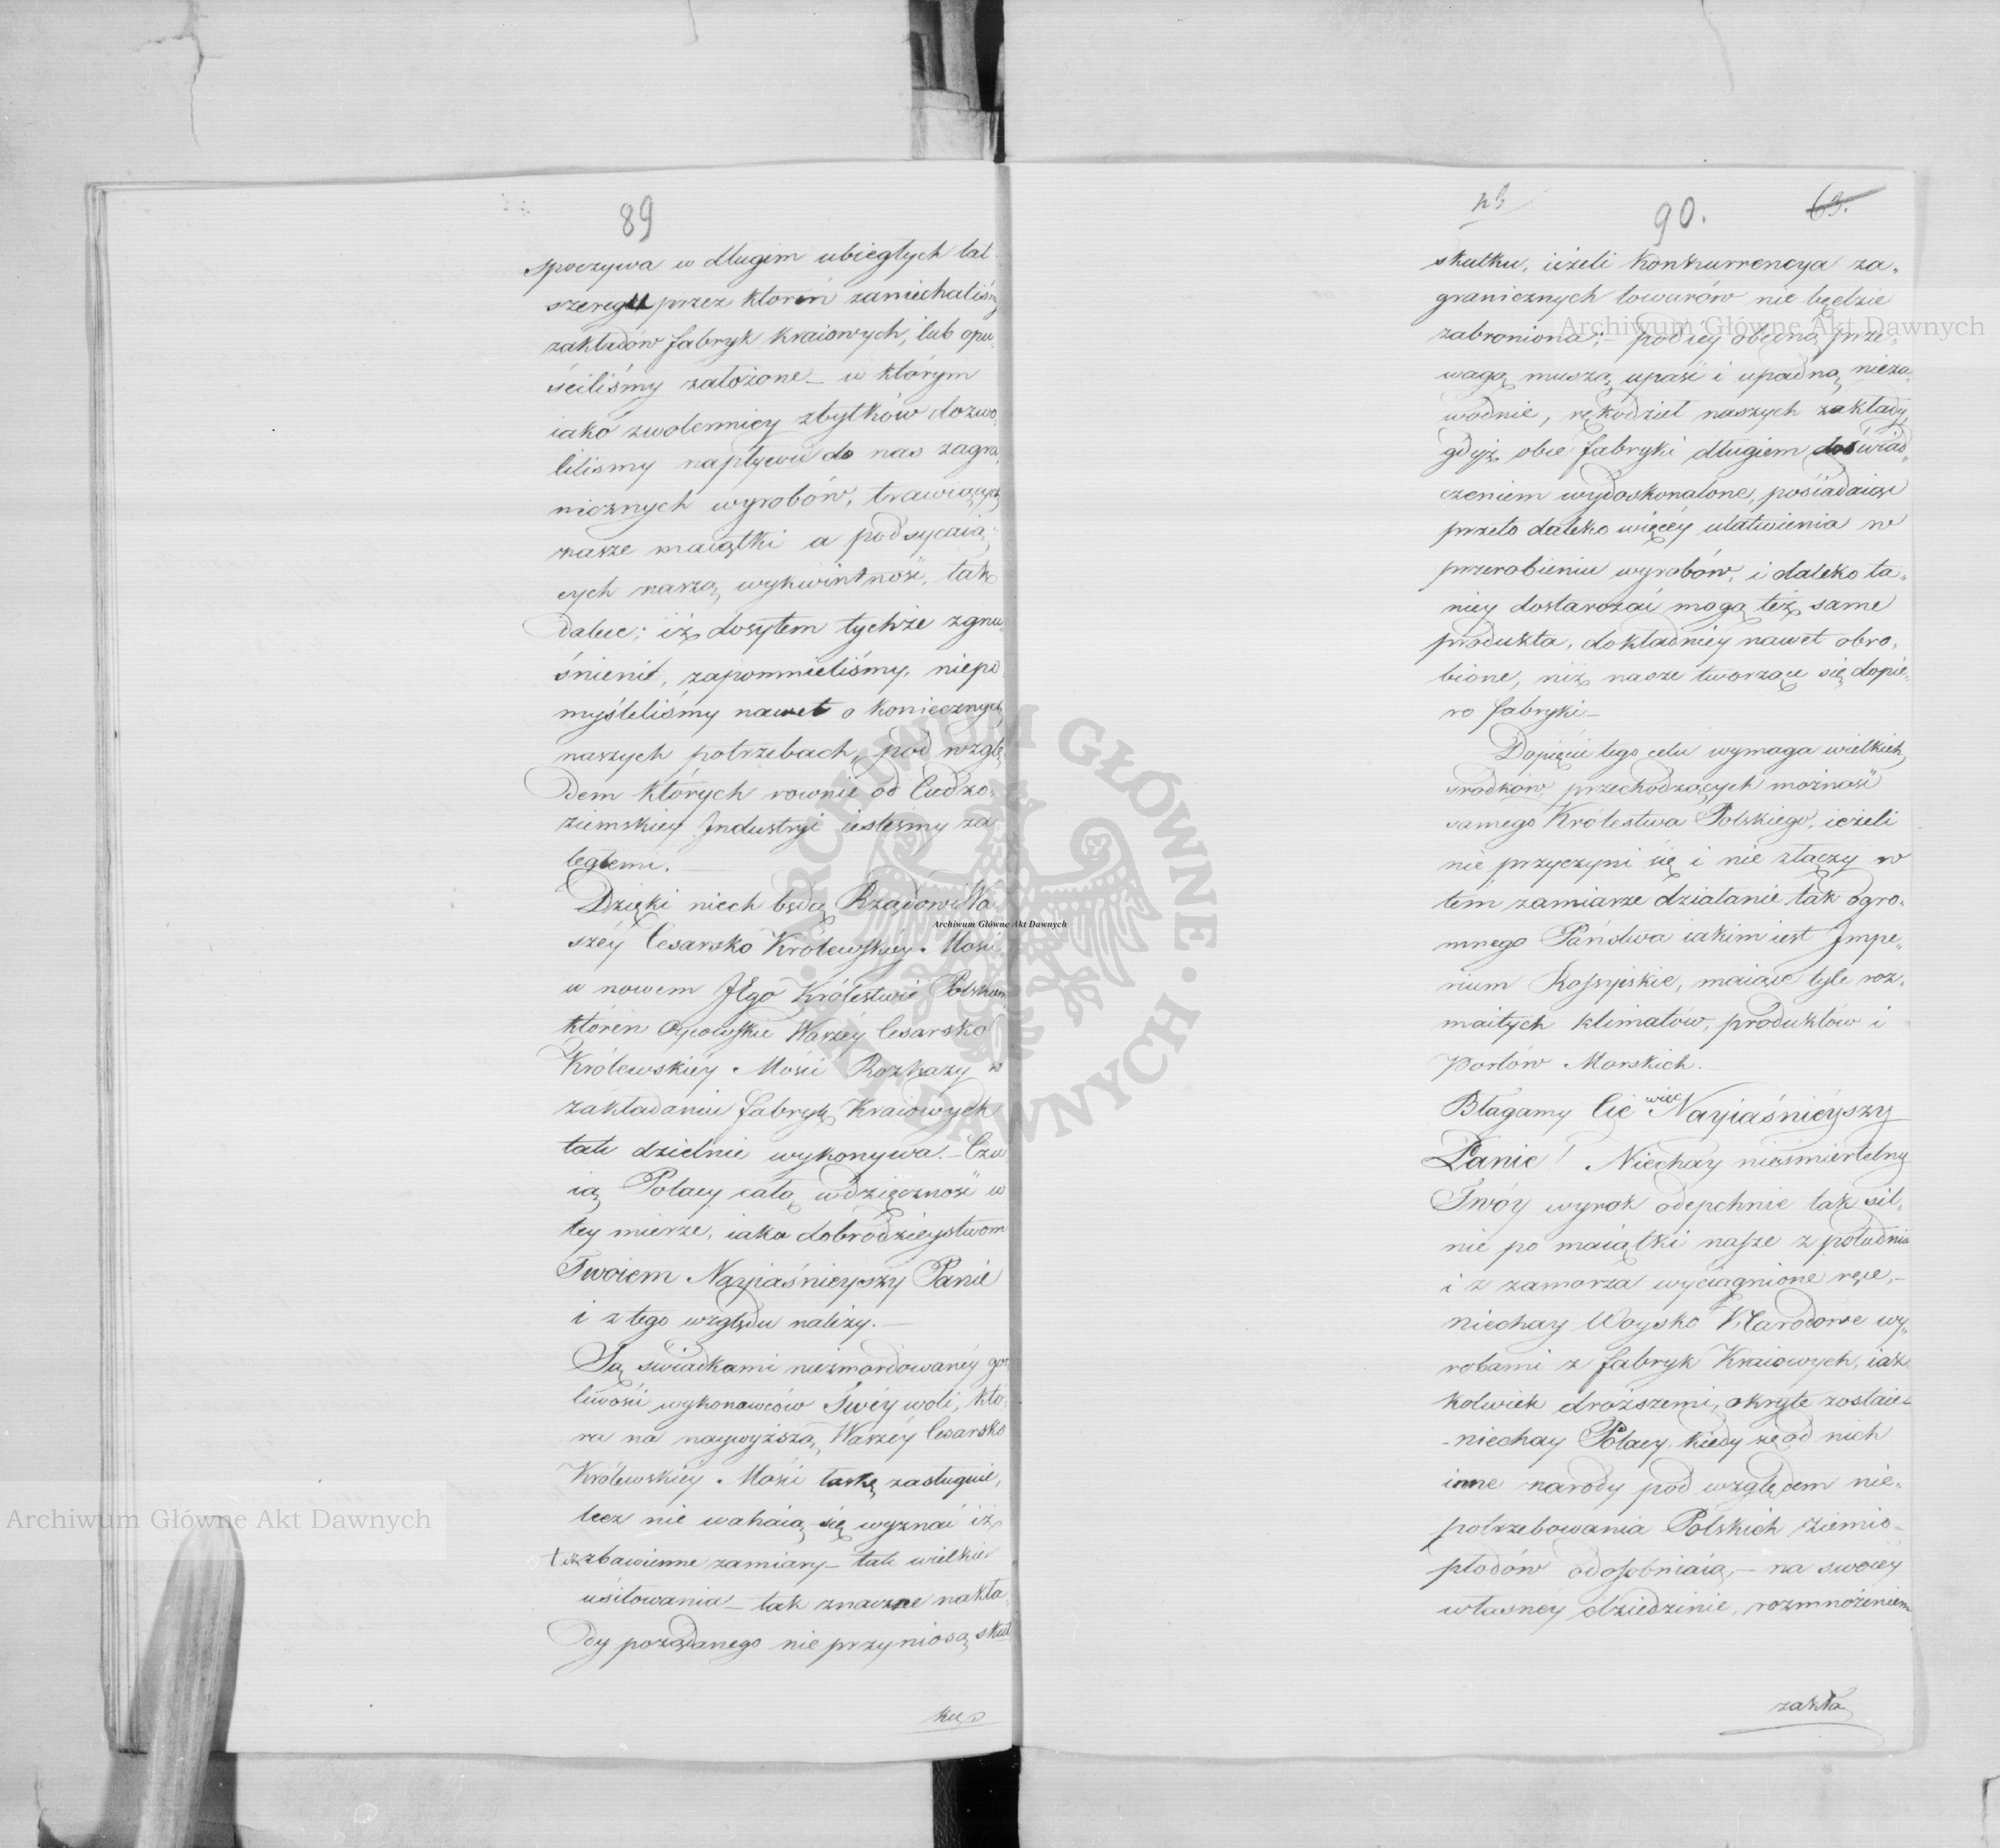 89
spoczywa w długim ubiegłych lat
szeregu przez ktoren zaniechaliśmy
zakładów fabryk kraiowych, lub opu„
ściliśmy założone – w którym
iako zwolennicy zbytków dozwo„
liliśmy napływu do nas zagra„
nicznych wyrobów, trawiących
nasze maiątki a podsycaią„
cych naszą wykwintność, tak
dalece; iż dosytem tychże zgnu„
śnieni, zapomnieliśmy, niepo
myśleliśmy nawet o koniecznych
naszych potrzebach, pod wzglę„
dem których rownie od Cudzo„
ziemskiey Industryi iestesmy za
ległemi. –
Dzięki niech będą Rządowi Wa
széy Cesarsko Królewskiéy Mości
w nowem Jego Królestwie Polskim
ktoren Oycowskie Waszéy Cesarsko
Królewskiéy Mości Rozkazy w
zakładaniu fabryk Kraiowych
tak dzielnie wykonywa. – Czu
ią Polacy całą wdzięczność w
tey mierze, iaka dobrodzieystwom
Twoiem Nayiaśnieyszy Panie
i z tego względu należy. –
Są świadkami niezmordowanéy gor„
liwości wykonawców Twéy woli, któ„
ra na naywyższą, Waszéy Cesarsko
Królewskiéy Mości łaskę zasługuie,
lecz nie wahaią się wyznać iż
te zbawienne zamiary – tak wielkie
usiłowania – tak znaczne nakła„
dy pożądanego nie przyniosą skut
ku
90.
63.
skutku, ieżeli konkurrencya za„
granicznych towarów nie będzie
zabroniona; – pod iéy obecną prze„
wagą muszą upaść i upadną nieza„
wodnie, rękodzieł naszych zakłady,
gdyż obce fabryki długiem doświad„
czeniem wydoskonalone, posiadaiąc
przeto daleko więcéy ułatwienia w
przerobieniu wyrobów, i daleko ta„
niey dostarczać mogą też same
produkta, dokładniey nawet obro„
bione, niż nasze tworzące się dopie„
ro fabryki –
Dopięcie tego celu wymaga wielkich
srodków przechodzących możność
samego Królestwa Polskiego, ieżeli
nie przyczyni się i nie złączy w
tém zamiarze działanie tak ogro„
mnego Państwa iakim iest Impe„
rium Rossyiskie, maiące tyle roz„
maitych klimatów, produktów i
Portów Morskich.
Błagamy Cię więc Nayiaśnieyszy
Panie! Niechay nieśmiertelny
Twóy wyrok odepchnie tak sil„
nie po maiątki nasze z południa
i z zamorza wyciągnione ręce, –
niechay Woysko Narodowe wy„
robami z fabryk Kraiowych, iak
kolwiek droższemi, okryte zostaie
– niechay Polacy, kiedy się od nich
inne narody pod względem nie„
potrzebowania Polskich ziemio„
płodów odosobniaią, – na swoiéy
własnéy dziedzinie, rozmnożeniem
zakła
Archiwum Główne Akt Dawnych
Archiwum Główne Akt Dawnych
Archiwum Główne Akt Dawnych
ARCHIWUM GŁÓWNE AKT DAWNYCH